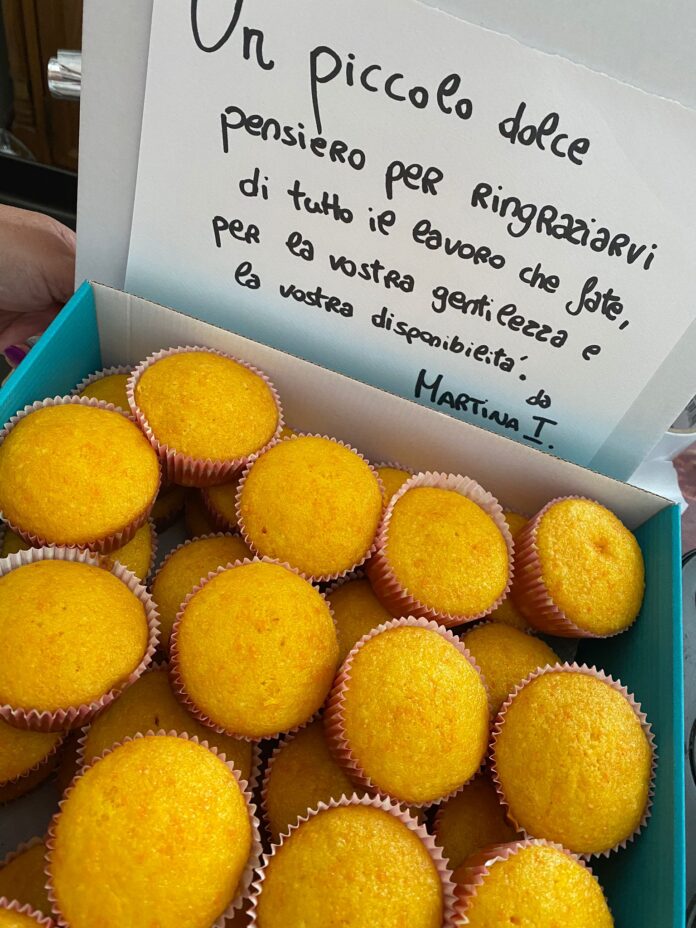 Un piccolo dolce
pensiero per ringraziarvi
di tutto il lavoro che fate,
per la vostra gentilezza e
la vostra disponibilità.
da
Martina I.